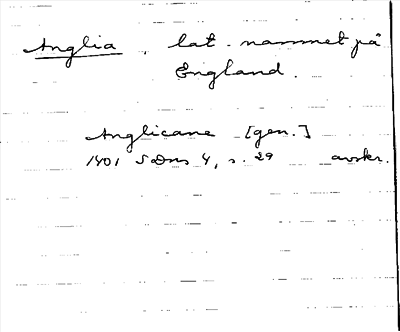 Anglia, lat. namnet på
England.
Anglicane [gen.]
1401 SDns 4, s. 29 avskr.